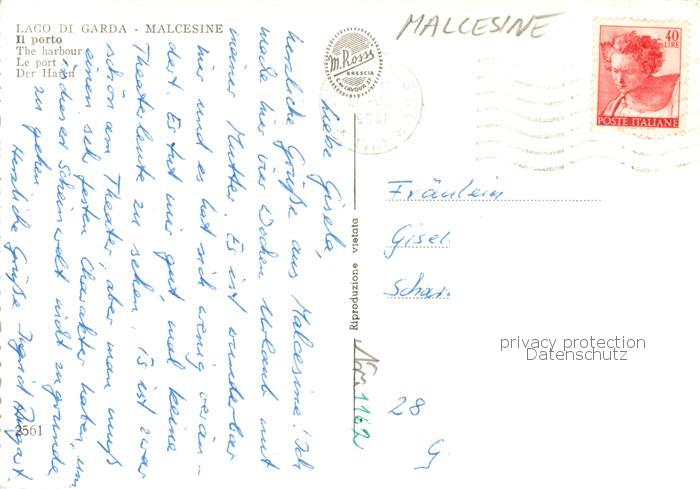 LAGO DI GARDA - MALCESINE
Il porto
The harbour
Le port
Der Hafen
MALCESINE
M. Rossi
BRESCIA
40
LIRE
POSTE ITALIANE
Liebe Gisela,
herzliche Grüße aus Malcesine! Ich
mache hier vier Wochen Urlaub mit
meiner Mutter. Es ist wunderbar
hier und es hat sich wenig verän-
dert. Es tut mir gut, mal keine
Theaterleute zu sehen. Es ist zwar
schön am Theater, aber man muß
einen sehr festen Charakter haben, um
in dieser Scheinwelt nicht zugrunde
zu gehen.
Herzliche Grüße Ingrid
Riproduzione vietata
Fräulein
Gisel
Schar
28
G
privacy protection
Datenschutz
1162
2561